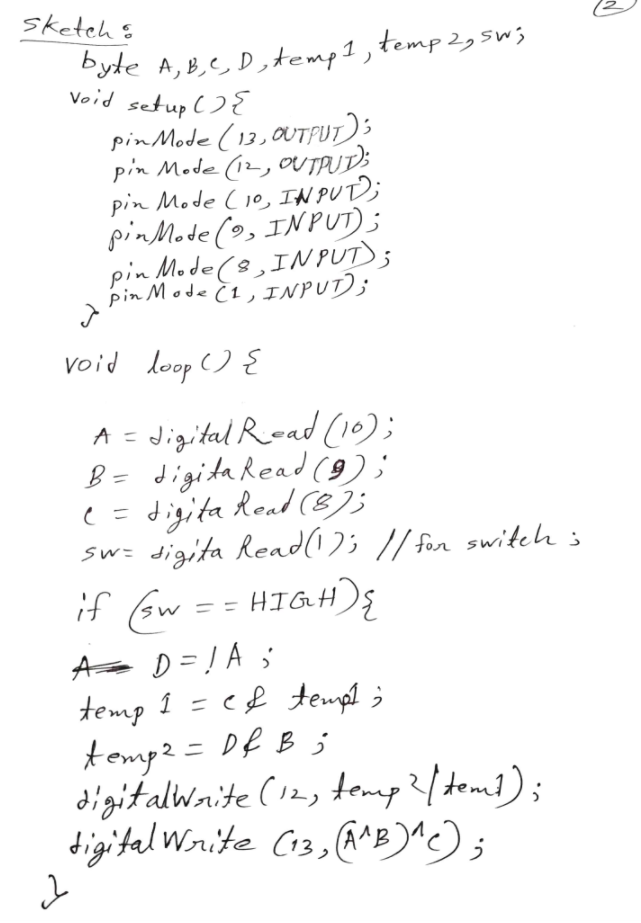 (2)
Sketch:
byte A, B, C, D, temp1, temp2, sw;
void setup () {
pinMode (13, OUTPUT);
pin Mode (12, OUTPUT);
pin Mode (10, INPUT);
pinMode (9, INPUT);
pin Mode (8, INPUT);
pin Mode (1, INPUT);
}
void loop () {
A = digital Read (10);
B = digita Read (9);
C = digita Read (8);
sw = digita Read(1); // for switch ;
if (sw == HIGH) {
D = !A ;
temp 1 = C & temp1 ;
temp2 = D & B ;
digitalWrite (12, temp2|tem1) ;
digital Write (13, (A^B)^C) ;
}